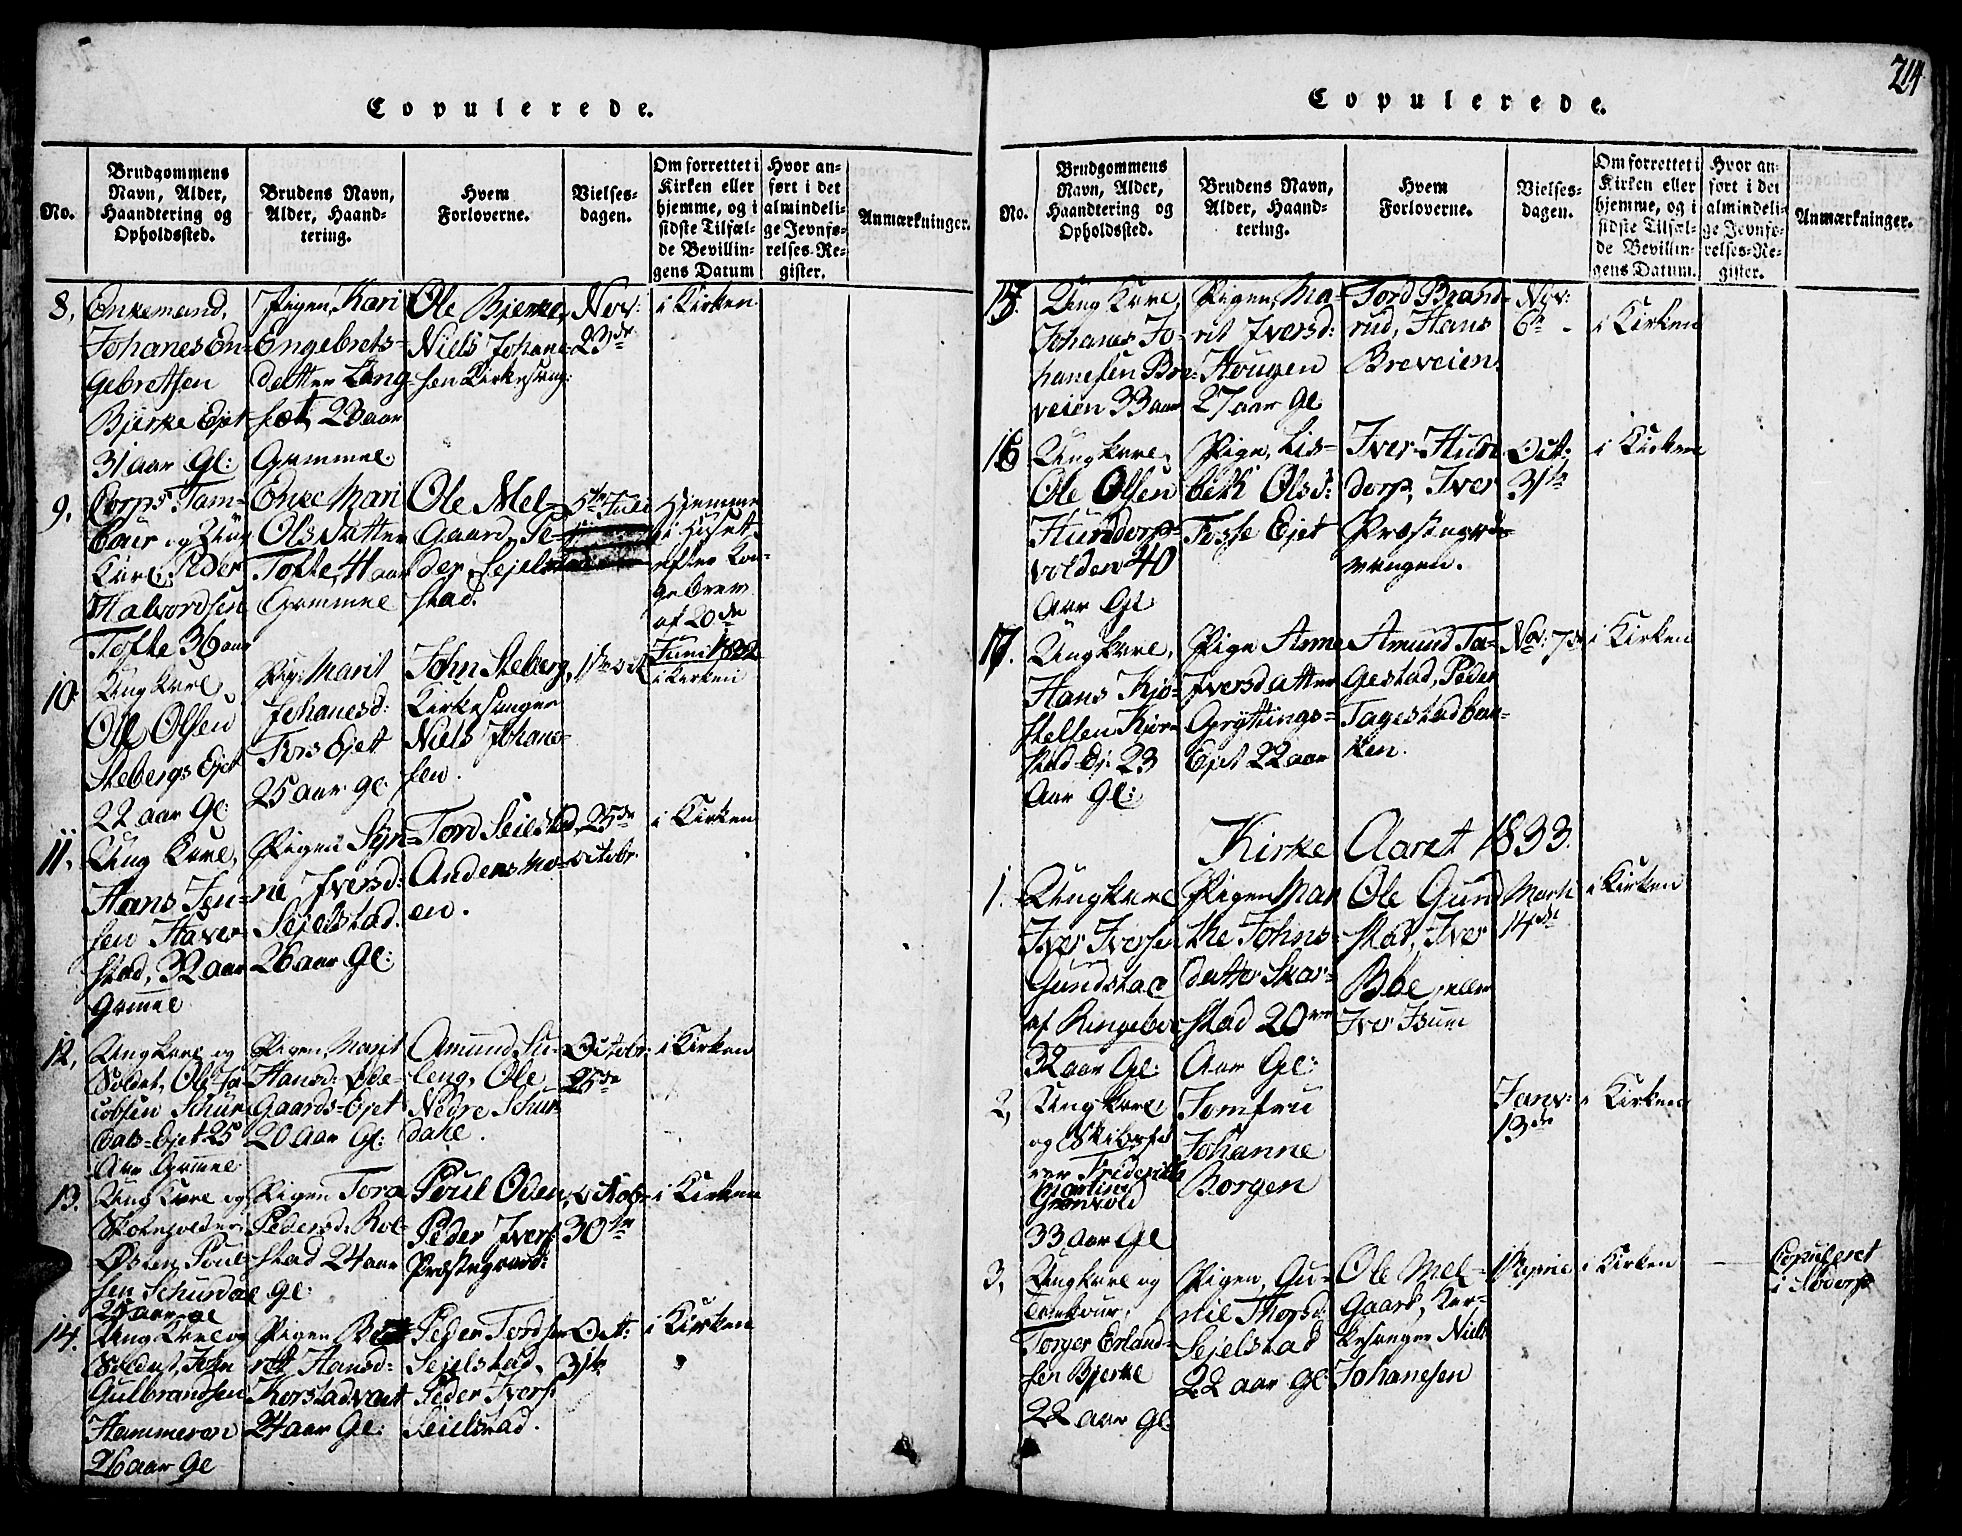 Copulerede.
No.
Brudgommens
Navn, Alder,
Haandtering og
Opholdssted.
Brudens Navn,
Alder, Haand-
tering.
Hvem
Forloverne.
Vielses-
dagen.
Om forrettet i
Kirken eller
hjemme, og i
sidste Tilfæl-
de Bevillin-
gens Datum
Hvor an-
ført i det
almindeli-
ge Jevnfø-
relses-Re-
gister.
Anmærkninger.
8,
Enkemand,
Johanes En-
gebretsen
Bjerke Ejet
31 aar Gl:
Pigen, Kari
Engebrets-
datter Lang-
sæt, 23 aar
Gammel.
Ole Bjerke,
Niels Johane-
sen Kirkesang:
Nov:
23de
i Kirken
9,
Corps Tam-
bour og Ung
Karl, Peder
Halvordsen
Tofte 36 aar
Enke Mari
Ols Datter
Tofte, 41 aar
Gammel
Ole Mel-
Gaard, Pe-
der Sejel-
stad.
5te Juli
Hjemme
i Huset
efter Kon-
gebrev
af 20de
Juni 1832
10.
Ung Karl,
Ole Olsen
Stebergs Ejet
22 aar Gl:
Pig: Marit
Johanesd:
Fors Ejet
25 aar gl:
John Steberg,
Kirkesanger
Niels Johane-
sen.
1ste Oct
i Kirken
11,
Ung Karl,
Hans Jen-
sen Haver-
stad, 32 aar
Gamel
Pigen Syn-
ne Iversd:
Sejelstad.
26 aar Gl:
Tord Seielstad,
Anders Mo-
en.
25de
Octobr.
i Kirken
12,
Ung Karl og
Soldat, Ole Ja-
cobsen Schur
dals-Ejet 25
Aar Gamel
Pigen, Marit
Hansd: Øde-
Gaards-Ejet
20 Aar Gl:
Amund Su-
leng, Ole
Nedre Schur
dahl.
Octobr:
25de
i Kirken
13.
Ung Karl og
Østen Poul-
sen Schurdal
29 aar gl
Pigen Tora
Pedersd. Rol-
stad 24 aar
Gl:
Poul Oden,
Peder Ivers:
Præstegaard:
Octob-
30te
i Kirken
14.
Ung Karl og
Soldat, John
Gulbrandsen
Hammeren
26 aar Gl
Pigen Be-
ret Hansd:
Korstadvedt
24 aar Gl:
Peder Tordsen
Sejelstad,
Peder Ivers:
Seielstad.
Oct:
31te
i Kirken
214
Copulerede.
No.
Brudgommens
Navn, Alder,
Haandtering og
Opholdssted.
Brudens Navn,
Alder, Haand-
tering.
Hvem
Forloverne.
Vielses-
dagen.
Om forrettet i
Kirken eller
hjemme, og i
sidste Tilfæl-
de Bevillin-
gens Datum.
Hvor an-
ført i det
almindeli-
ge Jevnfø-
relses-Re-
gister.
Anmærkninger.
15.
Ung Karl,
Johanes Jo-
hanesen Bre-
veien 33 aar
Pigen, Ma-
rit Iversd:
Hougen
27 aar Gl
Tord Brand-
rud, Hans
Breveien.
Nov:
6te
i Kirken
16
Ung Karl,
Ole Olsen
Hundorp-
volden 40
Aar Gl:
Pige, Lis-
beth Olsd:
Fosse Ejet
Iver Hun
dorp, Iver
Præstegrs-
vangen.
Oct:
31te
i Kirken
17.
Ung Karl,
Hans Kjø-
stelsen Kjør-
stad-Ej: 23
Aar Gl:
Pige Anne
Iversdatter
Gryttings-
Ejet 22 aar
Amund Ta-
Gestad, Peder
Tagestadbak-
ken.
Nov: 7de
i Kirken
Kirke Aaret 1833.
1.
Ung Karl
Iver Iversen
Gundstad
af Ringeboe
32 aar Gl:
Pigen Mar
the Johns-
datter Skar-
stad 20ve
Aar Gl:
Ole Gund
stad, Iver
Bøe, eller
Iver Isum
Marti
14de
i Kirken
2,
Ung Karl,
og Skibsfø-
rer Friderich
Martin
Grønvold
33 aar Gl
Jomfru
Johanne
Borgen
Janv:
13de
i Kirken
3,
Ung Karl og
Tambour,
Torger Erland-
sen Bjerke
22 aar gl:
Pigen, Gu-
nil Thorsd:
Sejelstad
22 aar gl:
Ole Mel-
Gaard, Kir-
kesanger Niels
Johanesen
i Kirken
Copuleret
i Sødorp